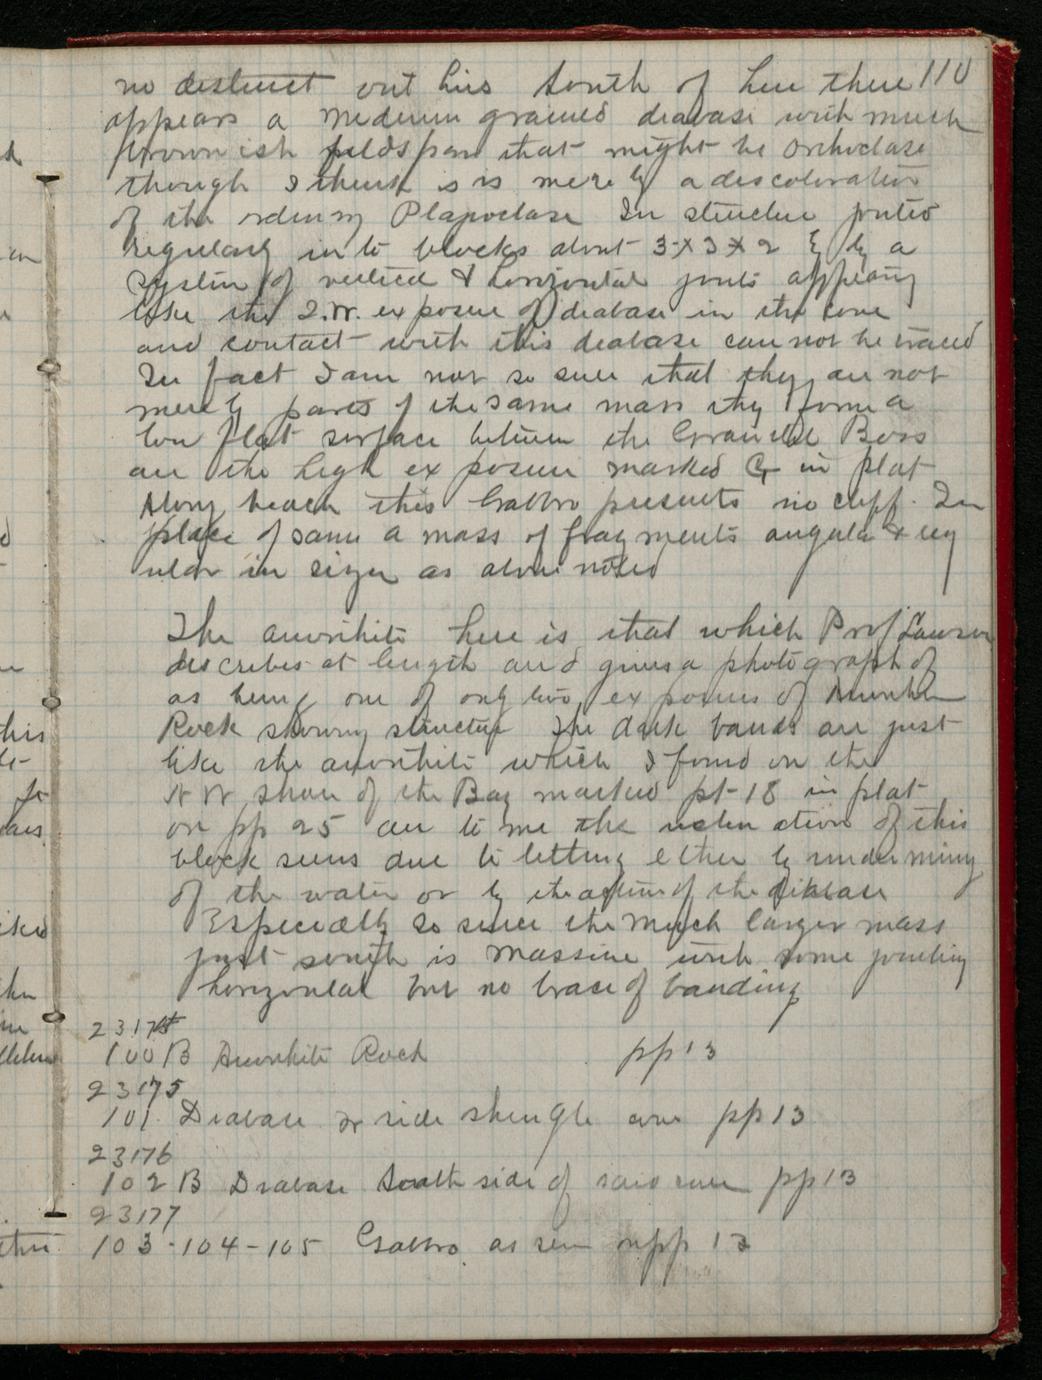 110
no distinct out lins South of here there
appears a medium grained diabase with much
brownish feldspar that might be Orthoclase
though I think is is merely a discoloration
of the ordinary Plagioclase In structure jointed
regularly in to blocks about 3 x 3 x 2 by a
system of vertical & horizontal joints appearing
like the S.W. exposure of diabase in the cove
and contact with this diabase can not be traced
In fact I am not so sure that they are not
merely parts of the same mass they form a
low flat surface between the Boss
are the high exposure marked G in plat
Along beach this Gabbro presents no cliff. In
place of same a mass of fragments angular & reg
ular in size as above noted
The anorthite here is that which Prof Lawson
describes at length and gives a photograph of
as being one of only two exposures of Anorthite
Rock showing structure The dark bands are just
like the anorthite which I found on the
N W shore of the Bay marked pt-18 in plat
on pp 25 are to me the of this
block seems due to letting either by undermining
of the water or by the action of the diabase
Especially so since the much larger mass
just south is massive with some jointing
horizontal but no trace of banding
23174
100 B Anorthite Rock pp 13
23175
101 Diabase side shingle cove pp 13
23176
102 B Diabase South side of said cove pp 13
23177
103-104-105 Gabbro as seen pp 13